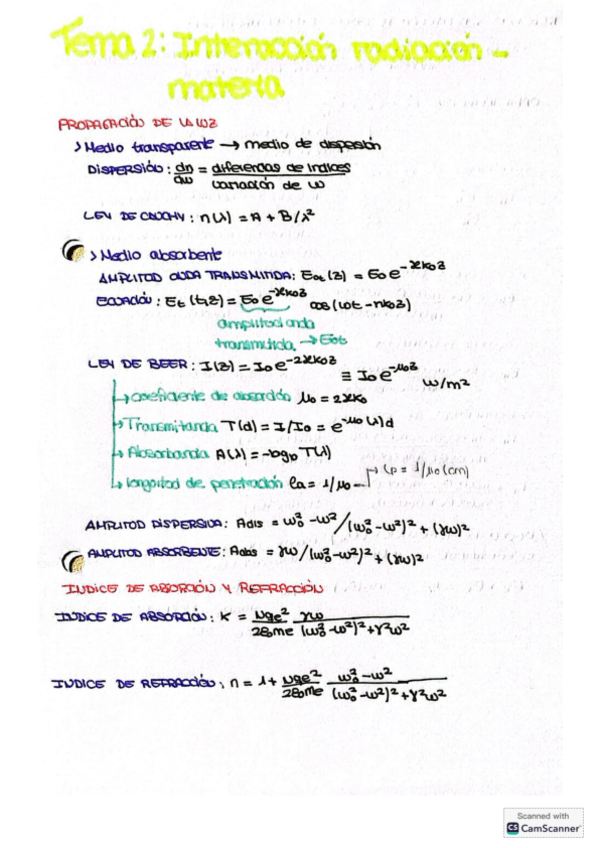 Tema 2: Interacción radiación -
materia
PROPAGACIÓN DE LA LUZ
> Medio transparente → medio de dispersión
DISPERSIÓN: dn/dω = diferencias de índices / variación de ω
LEY DE CAUCHY: n(λ) = A + B/λ²
> Medio absorbente
AMPLITUD ONDA TRANSMITIDA: E₀t(z) = E₀e^(-κk₀z)
ECUACIÓN: Et(t,z) = E₀e^(-κk₀z) cos(ωt - nk₀z)
amplitud onda
transmitida → E₀t
LEY DE BEER: I(z) = I₀e^(-2κk₀z) ≡ I₀e^(-μ₀z) W/m²
↳ coeficiente de absorción μ₀ = 2κk₀
↳ Transmitancia T(d) = I/I₀ = e^(-μ₀(λ)d)
↳ Absorbancia A(λ) = -log₁₀ T(λ)
↳ longitud de penetración la = 1/μ₀ → lp = 1/μ₀ (cm)
AMPLITUD DISPERSIVA: Adis = ω₀² - ω² / (ω₀² - ω²)² + (γω)²
AMPLITUD ABSORBENTE: Aabs = γω / (ω₀² - ω²)² + (γω)²
INDICE DE ABSORCIÓN Y REFRACCIÓN
INDICE DE ABSORCIÓN: κ = Nqe²/2ε₀me γω/(ω₀² - ω²)² + γ²ω²
INDICE DE REFRACCIÓN: n = 1 + Nqe²/2ε₀me ω₀² - ω²/(ω₀² - ω²)² + γ²ω²
Scanned with
CS CamScanner